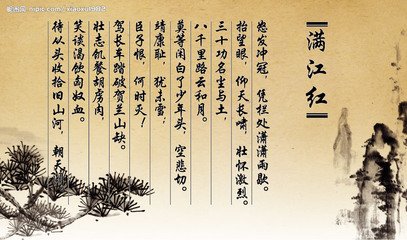 满江红
怒发冲冠，凭栏处潇潇雨歇。
抬望眼，仰天长啸，壮怀激烈。
三十功名尘与土，
八千里路云和月。
莫等闲白了少年头，空悲切。
靖康耻，犹未雪；
臣子恨，何时灭！
驾长车踏破贺兰山缺。
壮志饥餐胡虏肉，
笑谈渴饮匈奴血。
待从头收拾旧山河，朝天
昵图网